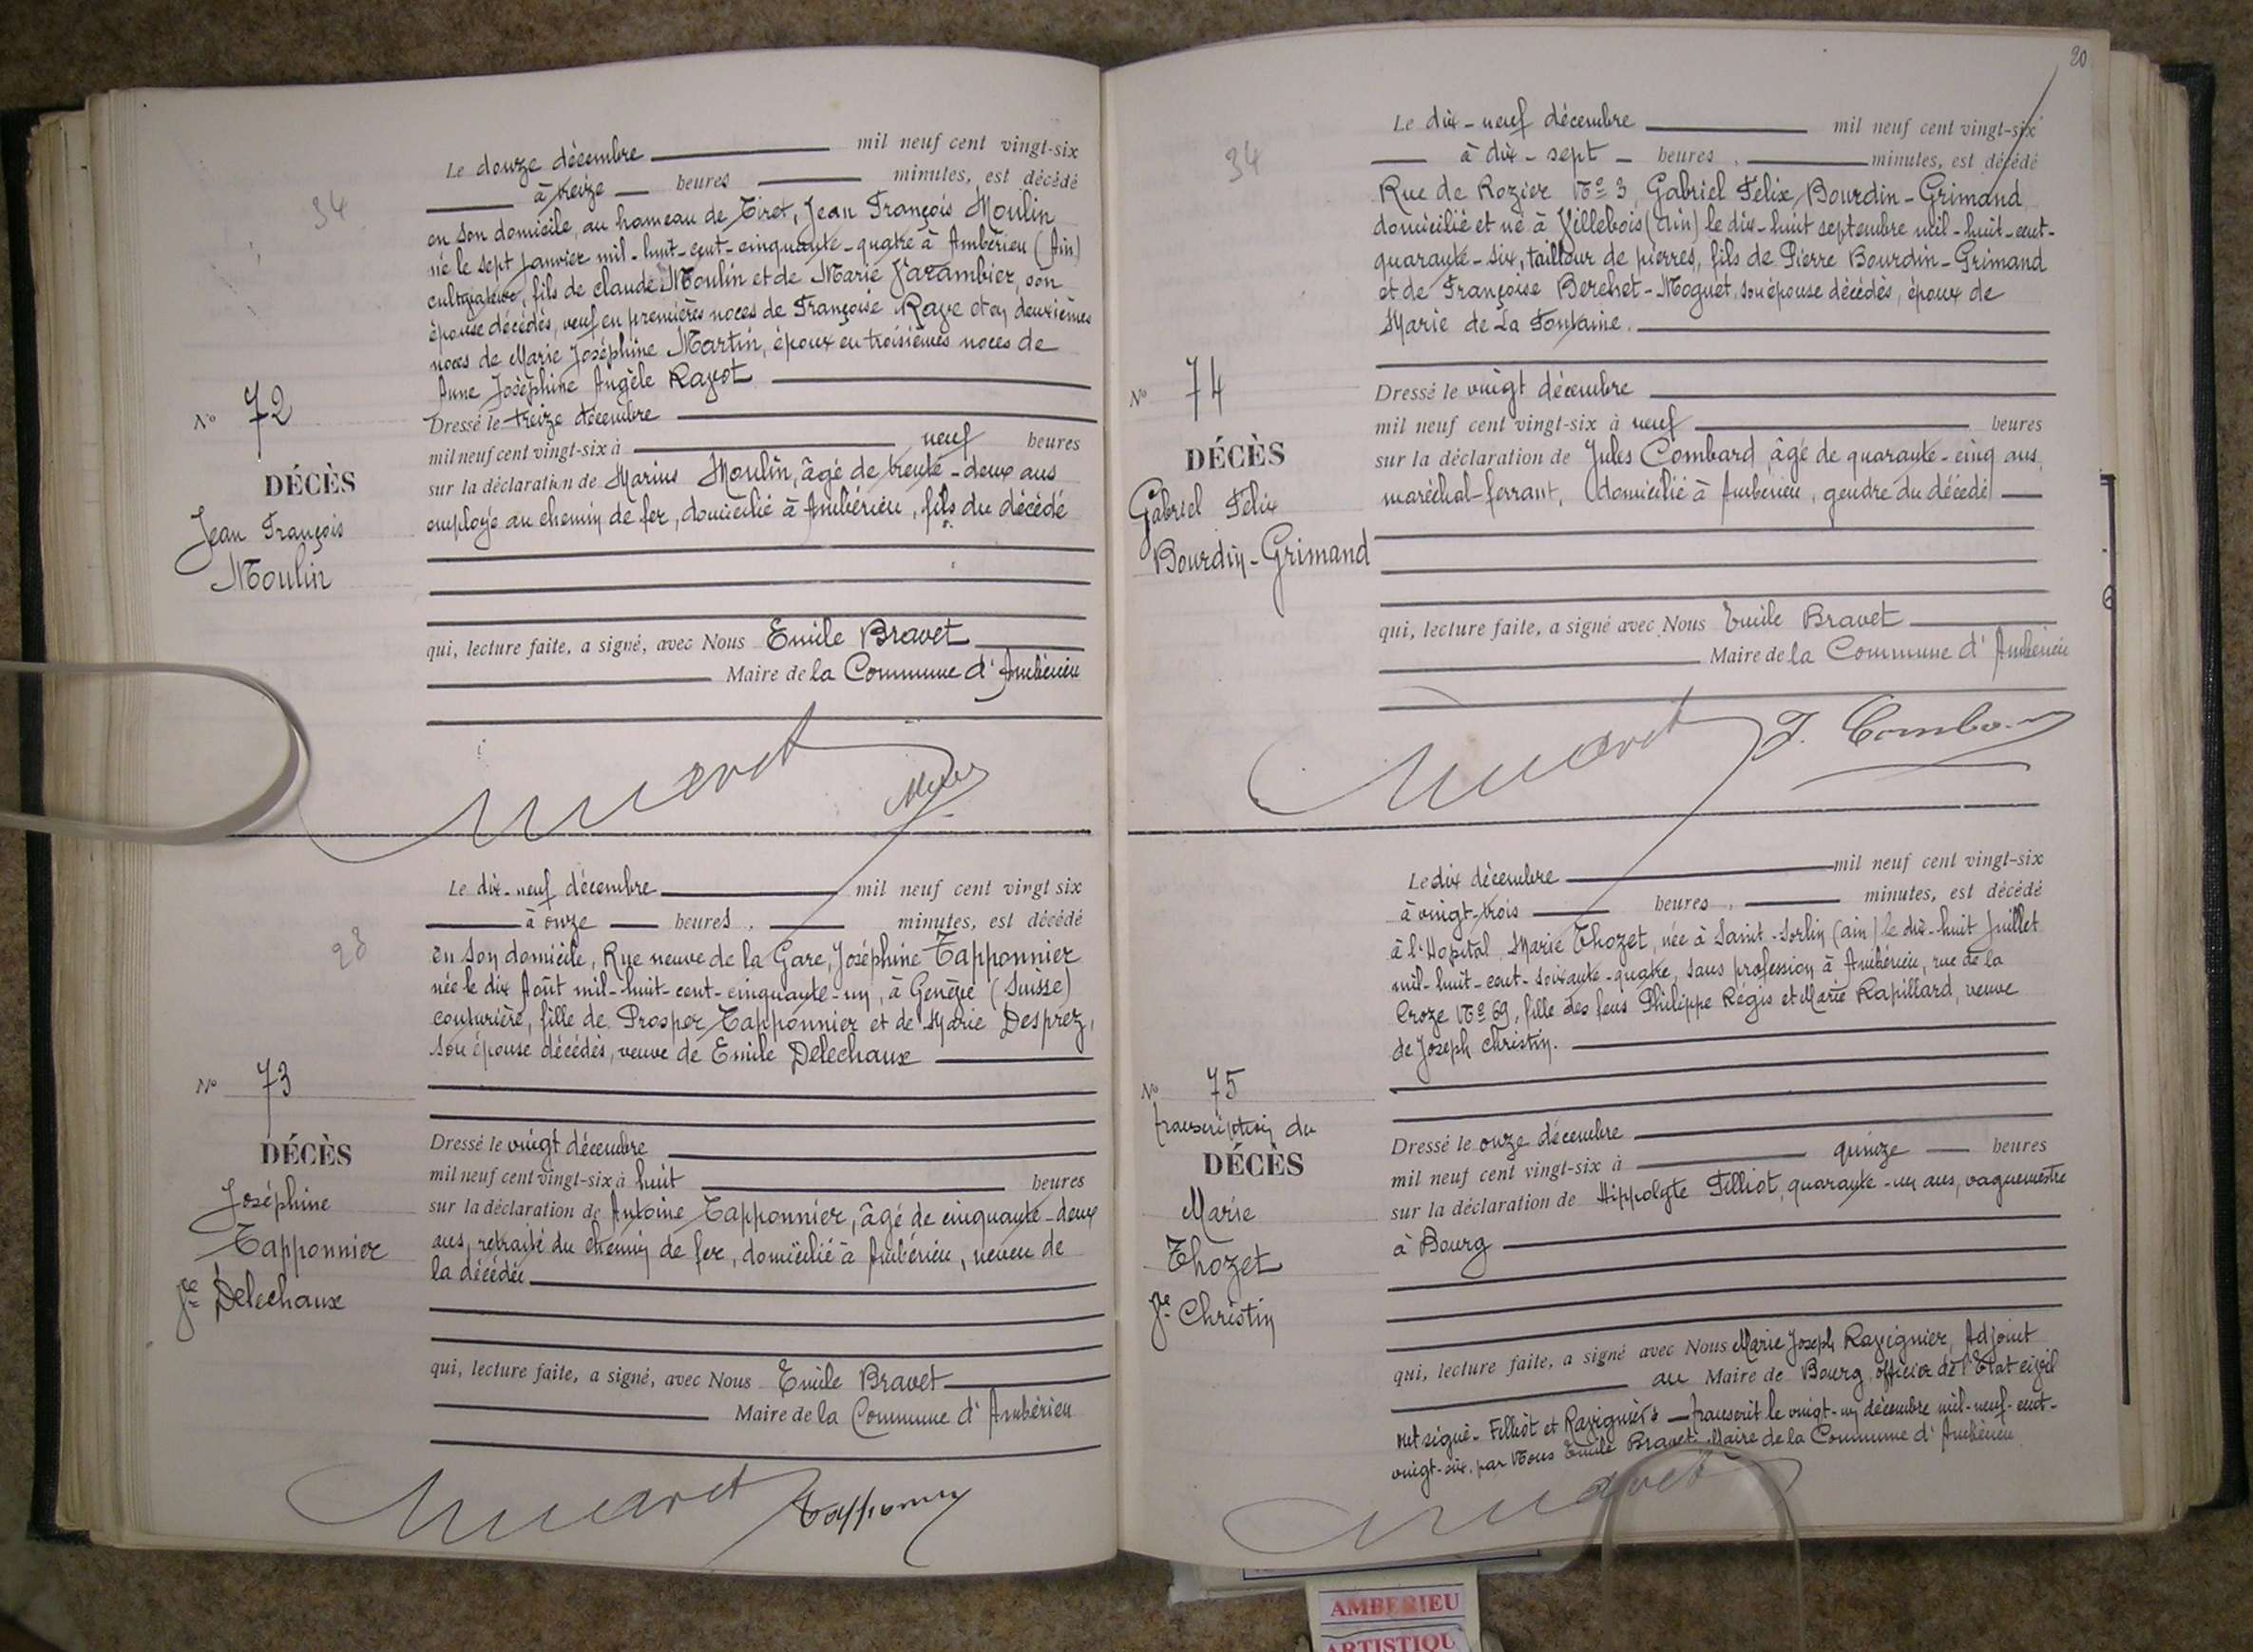 34
Le douze décembre mil neuf cent vingt-six
à treize heures minutes, est décédé
en son domicile, au hameau de Tiret, Jean François Moulin
né le sept janvier mil-huit-cent-cinquante-quatre à Ambérieu (Ain)
cultivateur, fils de claude Moulin et de Marie Jarambier, son
épouse décédés, veuf en premières noces de Françoise Raye et en deuxièmes
noces de Marie Joséphine Martin, époux en troisièmes noces de
Anne Joséphine Angèle Ravot
No 72
Dressé le treize décembre
mil neuf cent vingt-six à neuf heures
DÉCÈS
sur la déclaration de Marius Moulin, âgé de trente-deux ans
Jean François
employé au chemin de fer, domicilié à Ambérieu, fils du décédé
Moulin
qui, lecture faite, a signé, avec Nous Emile Bravet
Maire de la Commune d'Ambérieu
28
Le dix-neuf décembre mil neuf cent vingt six
à onze heures, minutes, est décédé
en son domicile, Rue neuve de la Gare, Joséphine Tapponnier
née le dix Août mil-huit-cent-cinquante-un, à Genève (Suisse)
couturière, fille de Prosper Tapponnier et de Marie Desprez,
son épouse décédés, veuve de Emile Delechaux
No 73
Dressé le vingt décembre
DÉCÈS
mil neuf cent vingt-six à huit heures
Joséphine
sur la déclaration de Antoine Tapponnier, âgé de cinquante-deux
Tapponnier
ans, retraité du chemin de fer, domicilié à Ambérieu, neveu de
la décédée
Vve Delechaux
qui, lecture faite, a signé, avec Nous Emile Bravet
Maire de la Commune d'Ambérieu
Tapponnier
20
34
Le dix-neuf décembre mil neuf cent vingt-six
à dix-sept heures, minutes, est décédé
Rue de Rozier No 3, Gabriel Félix Bourdin-Grimand
domicilié et né à Villebois (Ain) le dix-huit septembre mil-huit-cent-
quarante-six, tailleur de pierres, fils de Pierre Bourdin-Grimand
et de Françoise Berchet-Moguet, son épouse décédés, époux de
Marie de La Fontaine.
No 74
Dressé le vingt décembre
mil neuf cent vingt-six à neuf heures
DÉCÈS
sur la déclaration de Jules Combard, âgé de quarante-cinq ans,
Gabriel Félix
maréchal-ferrant, domicilié à Ambérieu, gendre du décédé
Bourdin-Grimand
qui, lecture faite, a signé avec Nous Emile Bravet
Maire de la Commune d'Ambérieu
Le dix décembre mil neuf cent vingt-six
à vingt-trois heures, minutes, est décédé
à l'Hopital, Marie Thozet, née à Saint-Sorlin (ain) le dix-huit Juillet
mil-huit-cent-soixante-quatre, sans profession à Ambérieu, rue de la
Croze No 69, fille des feus Philippe Régis et Marie Rapillard, veuve
de Joseph Christin.
No 75
transcription du
DÉCÈS
Dressé le onze décembre
mil neuf cent vingt-six à quinze heures
Marie
sur la déclaration de Hippolyte Filliot, quarante-un ans, vaguemestre
Thozet
à Bourg
Vve Christin
qui, lecture faite, a signé avec Nous Marie Joseph Ravignier, Adjoint
au Maire de Bourg, officier de l'Etat civil
ont signé - Filliot et Ravigniers - transcrit le vingt-un décembre mil-neuf-cent-
vingt-six, par Nous Emile Bravet, Maire de la Commune d'Ambérieu
AMBERIEU
ARTISTIQU